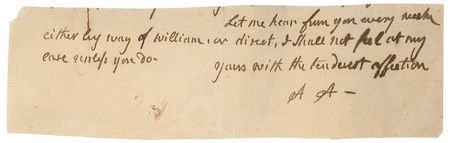 Let me hear from you every week
either by way of william, or direct, I shall not feel at my
ease unless you do- yours with the tenderest affection
A A -